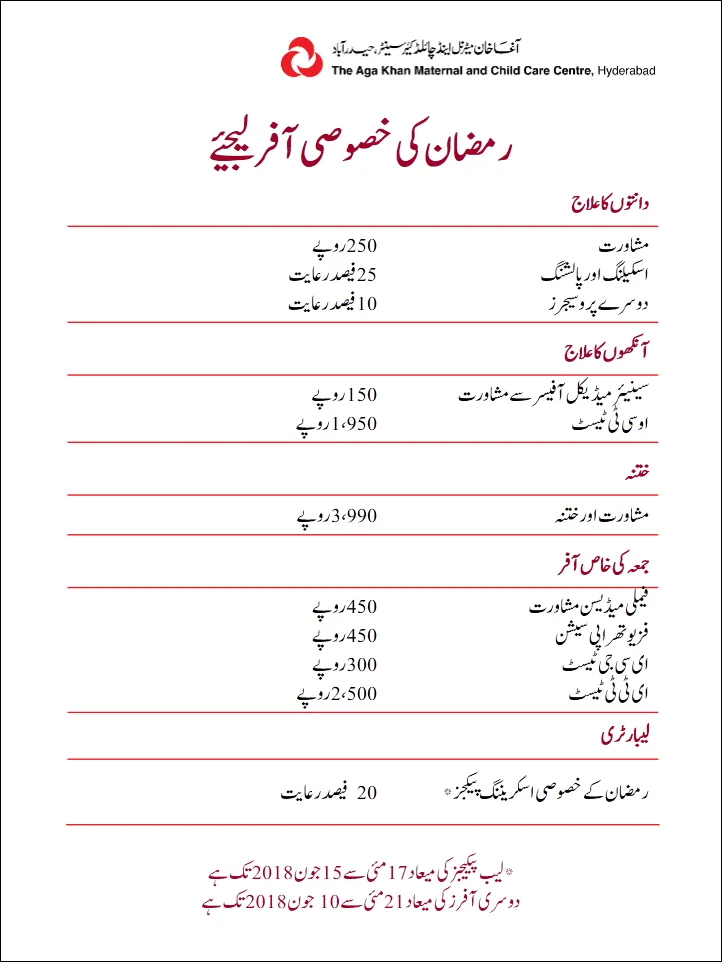 آغا خان میٹرنل اینڈ چائلڈ کیئر سینٹر، حیدرآباد
The Aga Khan Maternal and Child Care Centre, Hyderabad
رمضان کی خصوصی آفر لیجیئے
دانتوں کا علاج
مشاورت 250 روپے
اسکیلنگ اور پالشنگ 25 فیصد رعایت
دوسرے پروسیجرز 10 فیصد رعایت
آنکھوں کا علاج
سینیئر میڈیکل آفیسر سے مشاورت 150 روپے
او سی ٹی ٹیسٹ 1،950 روپے
ختنہ
مشاورت اور ختنہ 3،990 روپے
جمعہ کی خاص آفر
فیملی میڈیسن مشاورت 450 روپے
فزیوتھراپی سیشن 450 روپے
ای سی جی ٹیسٹ 300 روپے
ای ٹی ٹی ٹیسٹ 2،500 روپے
لیبارٹری
رمضان کے خصوصی اسکریننگ پیکجز* 20 فیصد رعایت
*لیب پیکیجز کی میعاد 17 مئی سے 15 جون 2018 تک ہے
دوسری آفرز کی میعاد 21 مئی سے 10 جون 2018 تک ہے